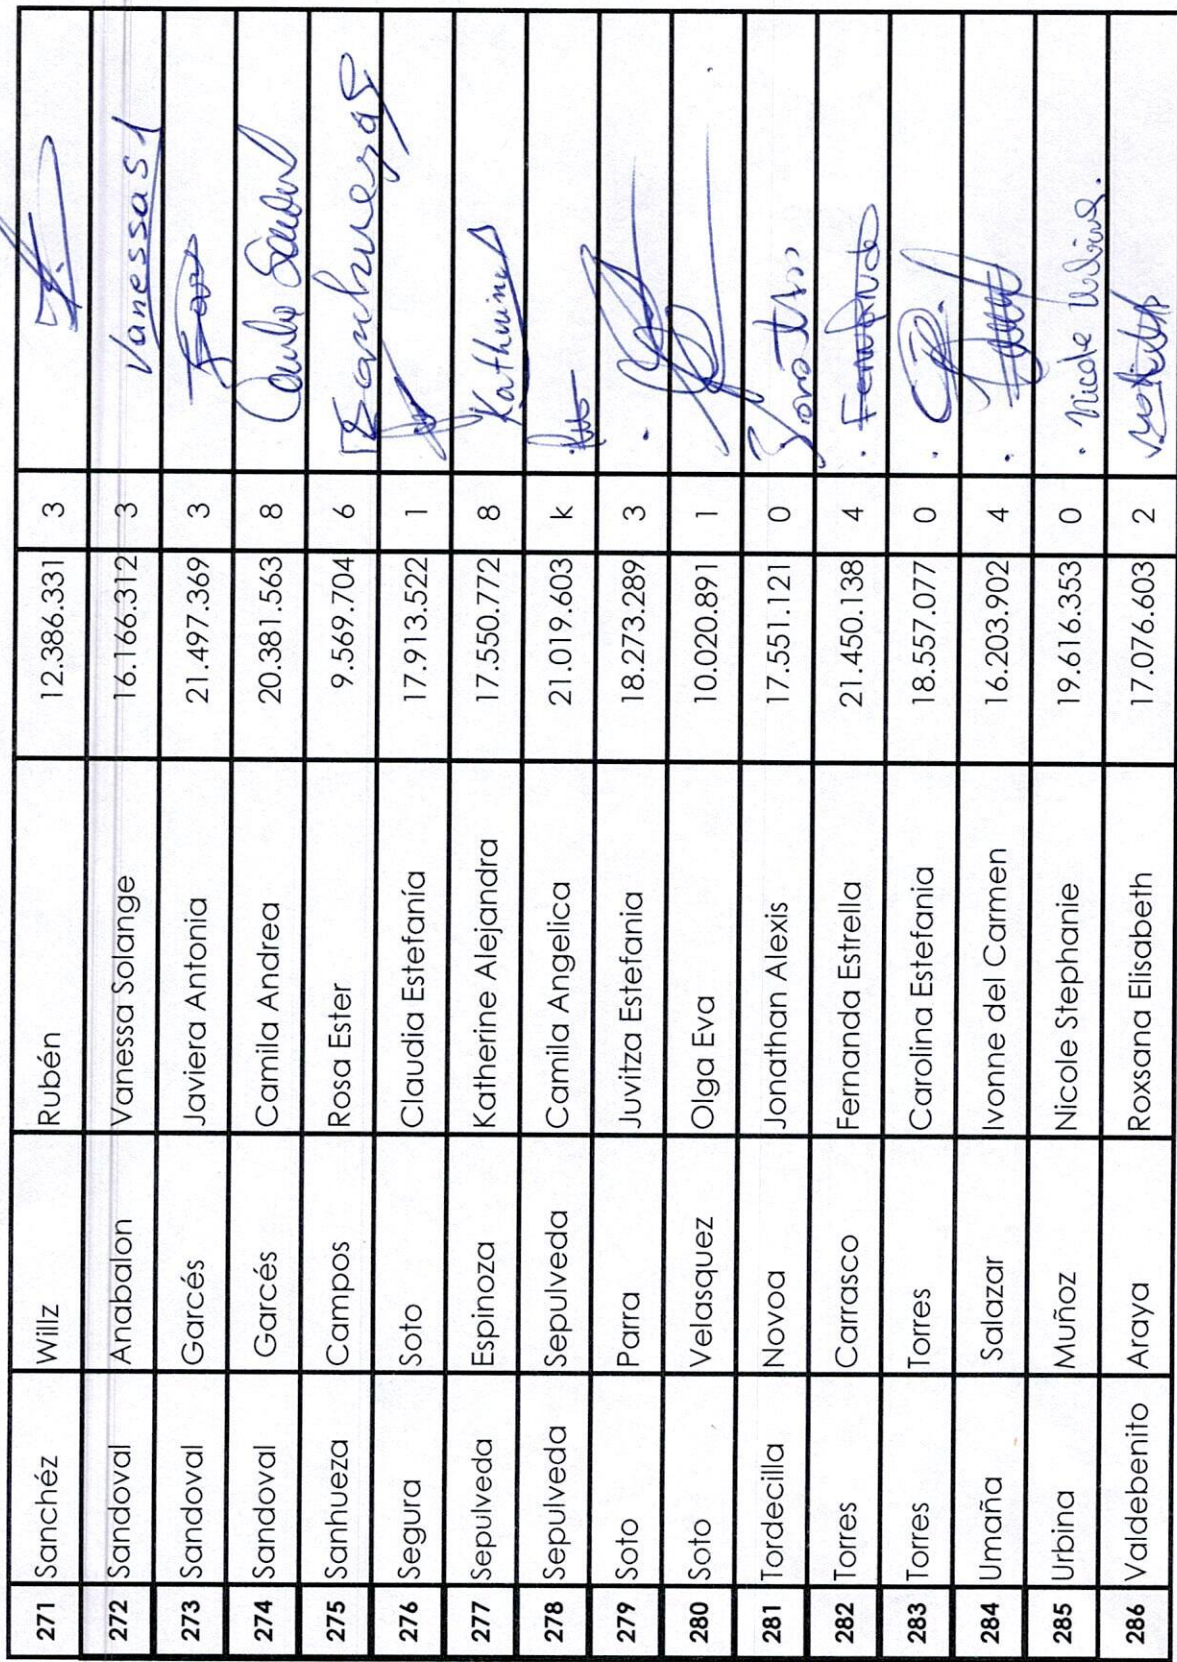 271 Sanchéz Willz Rubén 12.386.331 3
272 Sandoval Anabalon Vanessa Solange 16.166.312 3 Vanessa S
273 Sandoval Garcés Javiera Antonia 21.497.369 3
274 Sandoval Garcés Camila Andrea 20.381.563 8
275 Sanhueza Campos Rosa Ester 9.569.704 6
276 Segura Soto Claudia Estefanía 17.913.522 1
277 Sepulveda Espinoza Katherine Alejandra 17.550.772 8
278 Sepulveda Sepulveda Camila Angelica 21.019.603 k
279 Soto Parra Juvitza Estefania 18.273.289 3
280 Soto Velasquez Olga Eva 10.020.891 1
281 Tordecilla Novoa Jonathan Alexis 17.551.121 0
282 Torres Carrasco Fernanda Estrella 21.450.138 4 Fernanda
283 Torres Torres Carolina Estefania 18.557.077 0
284 Umaña Salazar Ivonne del Carmen 16.203.902 4
285 Urbina Muñoz Nicole Stephanie 19.616.353 0 Nicole Urbina.
286 Valdebenito Araya Roxsana Elisabeth 17.076.603 2